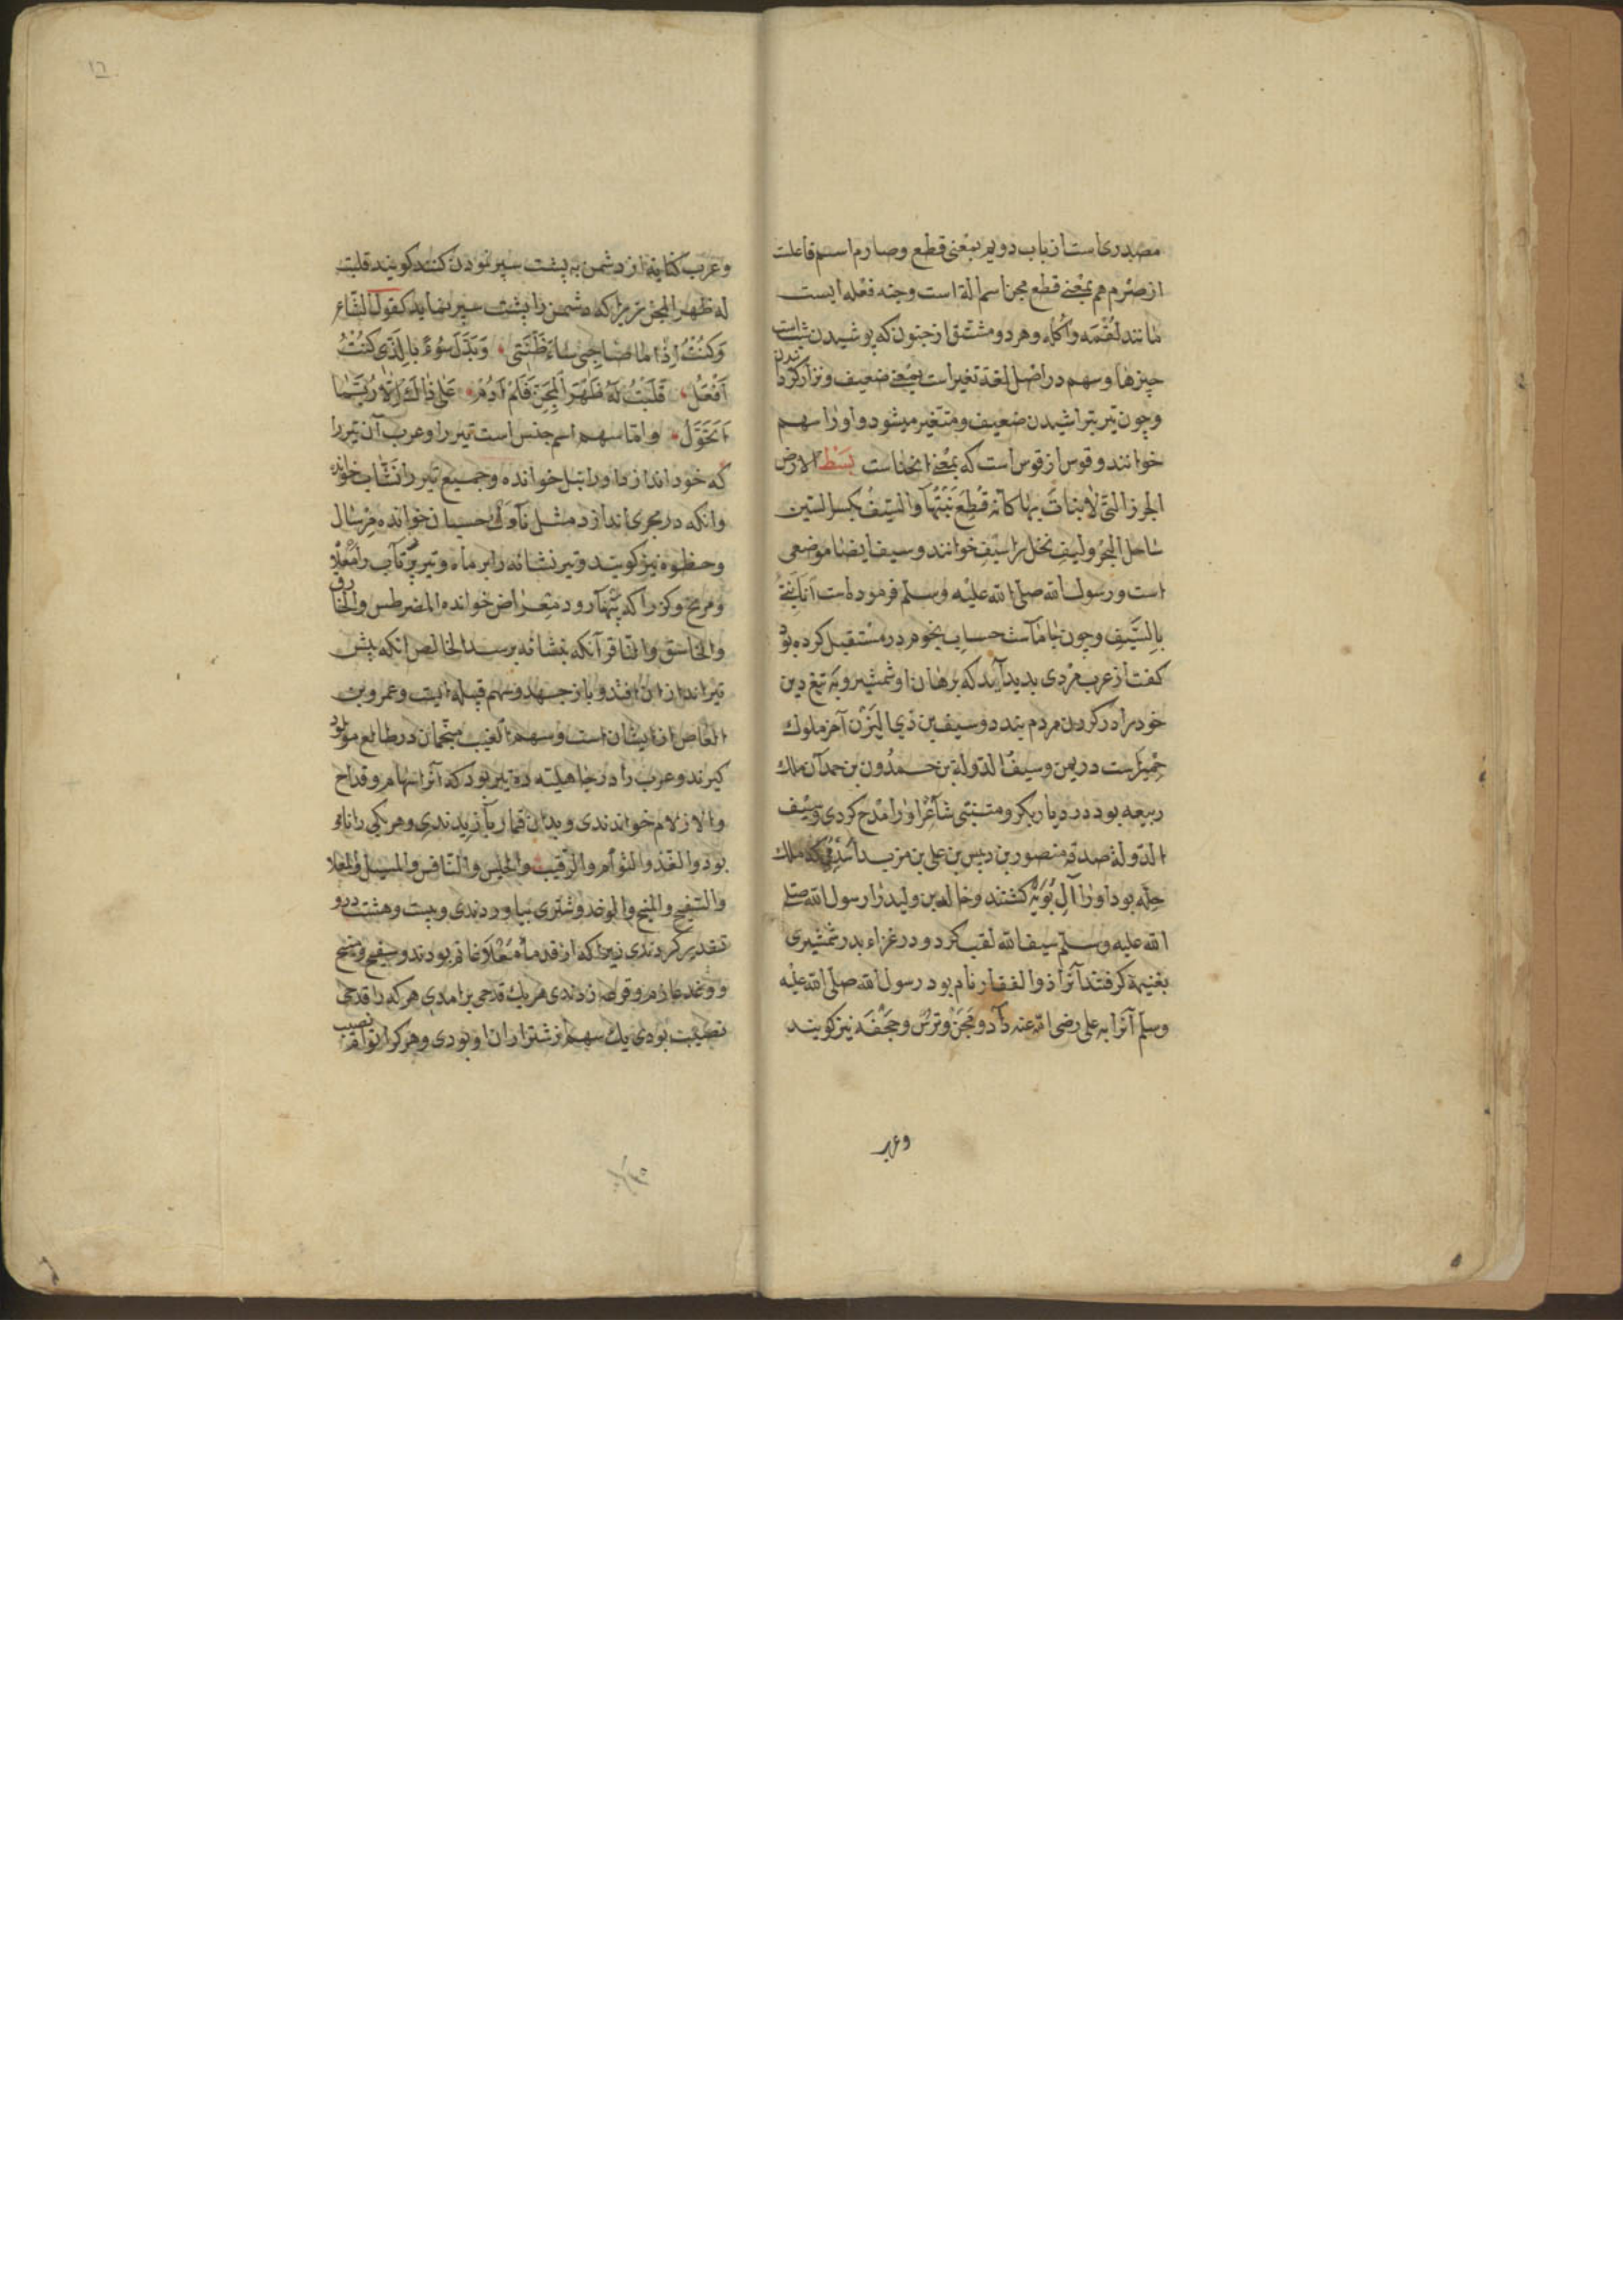 مصدری است از باب دویم بمعنی قطع و صارم اسم فاعلت
از صرم هم بمعنی قطع مجن اسم الة است و جنه فعله ایست
مانند لقمه و اکله و هر دو مشتق از جنون که پوشیدن است
چیزها و سهم در اصل لغة تغیر است بمعنی ضعیف و نزار کردن
و چون تیر بتراشیدن ضعیف و متغیر میشود او را سهم
خوانند و قوس از قوس است که بمعنی انحناست بسط الارض
الجرز التی لا نبات بها کانه قطع نبتها و السیف بکسر السین
ساحل البحر و لیف نخل را سیف خوانند و سیف ایضا موضعی
است و رسول الله صلی الله علیه و سلم فرموده است
بالسیف و چون حساب نجوم در مستقبل کرده بود
کفت از عرب مردی بدید آید که برهان او شمشیر و به تیغ دین
خود را در کردن مردم بندد و سیف بن ذی الیزن آخر ملوک
حمیرست در یمن و سیف الدولة بن حمدون بن حمدان ملک
ربیعه بود در دیار بکر و متنبی شاعر او را مدح کردی و سیف
الدولة صدقة منصور بن دبیس بن علی بن مزید اسدی که ملک
حله بود او را آل بویه کشتند و خالد بن ولید را رسول الله صلی
الله علیه و سلم سیف الله لقب کرد و در غزاء بدر شمشیری
بغنیمة کرفتند آنرا ذو الفقار نام بود رسول الله صلی الله علیه
و سلم آنرا به علی رضی الله عنه داد و مجن و ترس و حجفه نیز کویند
وعرب
۱۲
و عرب کنایة از دشمن به پشت سپر نمودن کنند کویند قلبت
له ظهر المجن زیرا که دشمن را پشت سپر نماید کقول الشاعر
وَکُنْتُ اِذَا مَا صَاحِبی سَاءَ ظَنَّتی وَبَدَّلَ سُوءً بِالَّذی کُنْتُ
اَفْعَلُ قَلَبْتُ لَهُ ظَهْرَ الْمِجَنِّ فَلَمْ اَدُمْ عَلی ذَالِکَ اِلَّا رُیَّثَمَا
اَتَحَوَّلُ و اما سهم اسم جنس است تیر را و عرب آن تیر را
که خود اندازند او را نبل خوانده و جمیع تیر را نشاب خوانده
و انکه در مجری اندازد مثل ناوک حسبان خوانده مرسال
و حظوه نیز کویند و تیر نشانه را برماه و تیر پرتاب را
و مریخ و کز را که پهنا رود معراض خوانده المضرطس و الخارق
و الخاسق و الناقر آنکه بنشانه برسد الخالص انکه پیش
تیر انداز افتد و باز جهد و سهم قبیله ایست و عمرو بن
العاص از ایشان است و سهم الغیب منجمان در طالع مولود
کیرند و عرب را در جاهلیت ده تیر بود که آنرا سهام و قداح
و الازلام خواندندی و بدان قمار بازیدندی و هر یکی را نام
بود و الفذ و التوأم و الرقیب و الحلس و النافس و المسبل و المعلا
و السفیح و المنیح و الوغد و شتری بیاوردندی و بیست و هشت درو
تقدیر کردندی زیرا که از قدماه معلا غانم بودند و سفیح و منیح
و وغد غارم و قرعه زدندی هر یک قدحی برامدی هر که را قدحی
نصیب بودی یک سهم از شتر از ان او بودی و هر کرا توأم نصیب